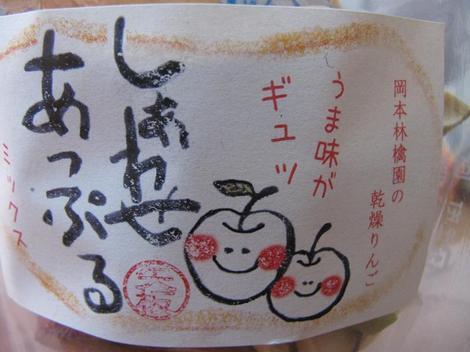 岡本林檎園の
乾燥りんご
うま味が
ギュッ
しあわせ
あっぷる
ミックス